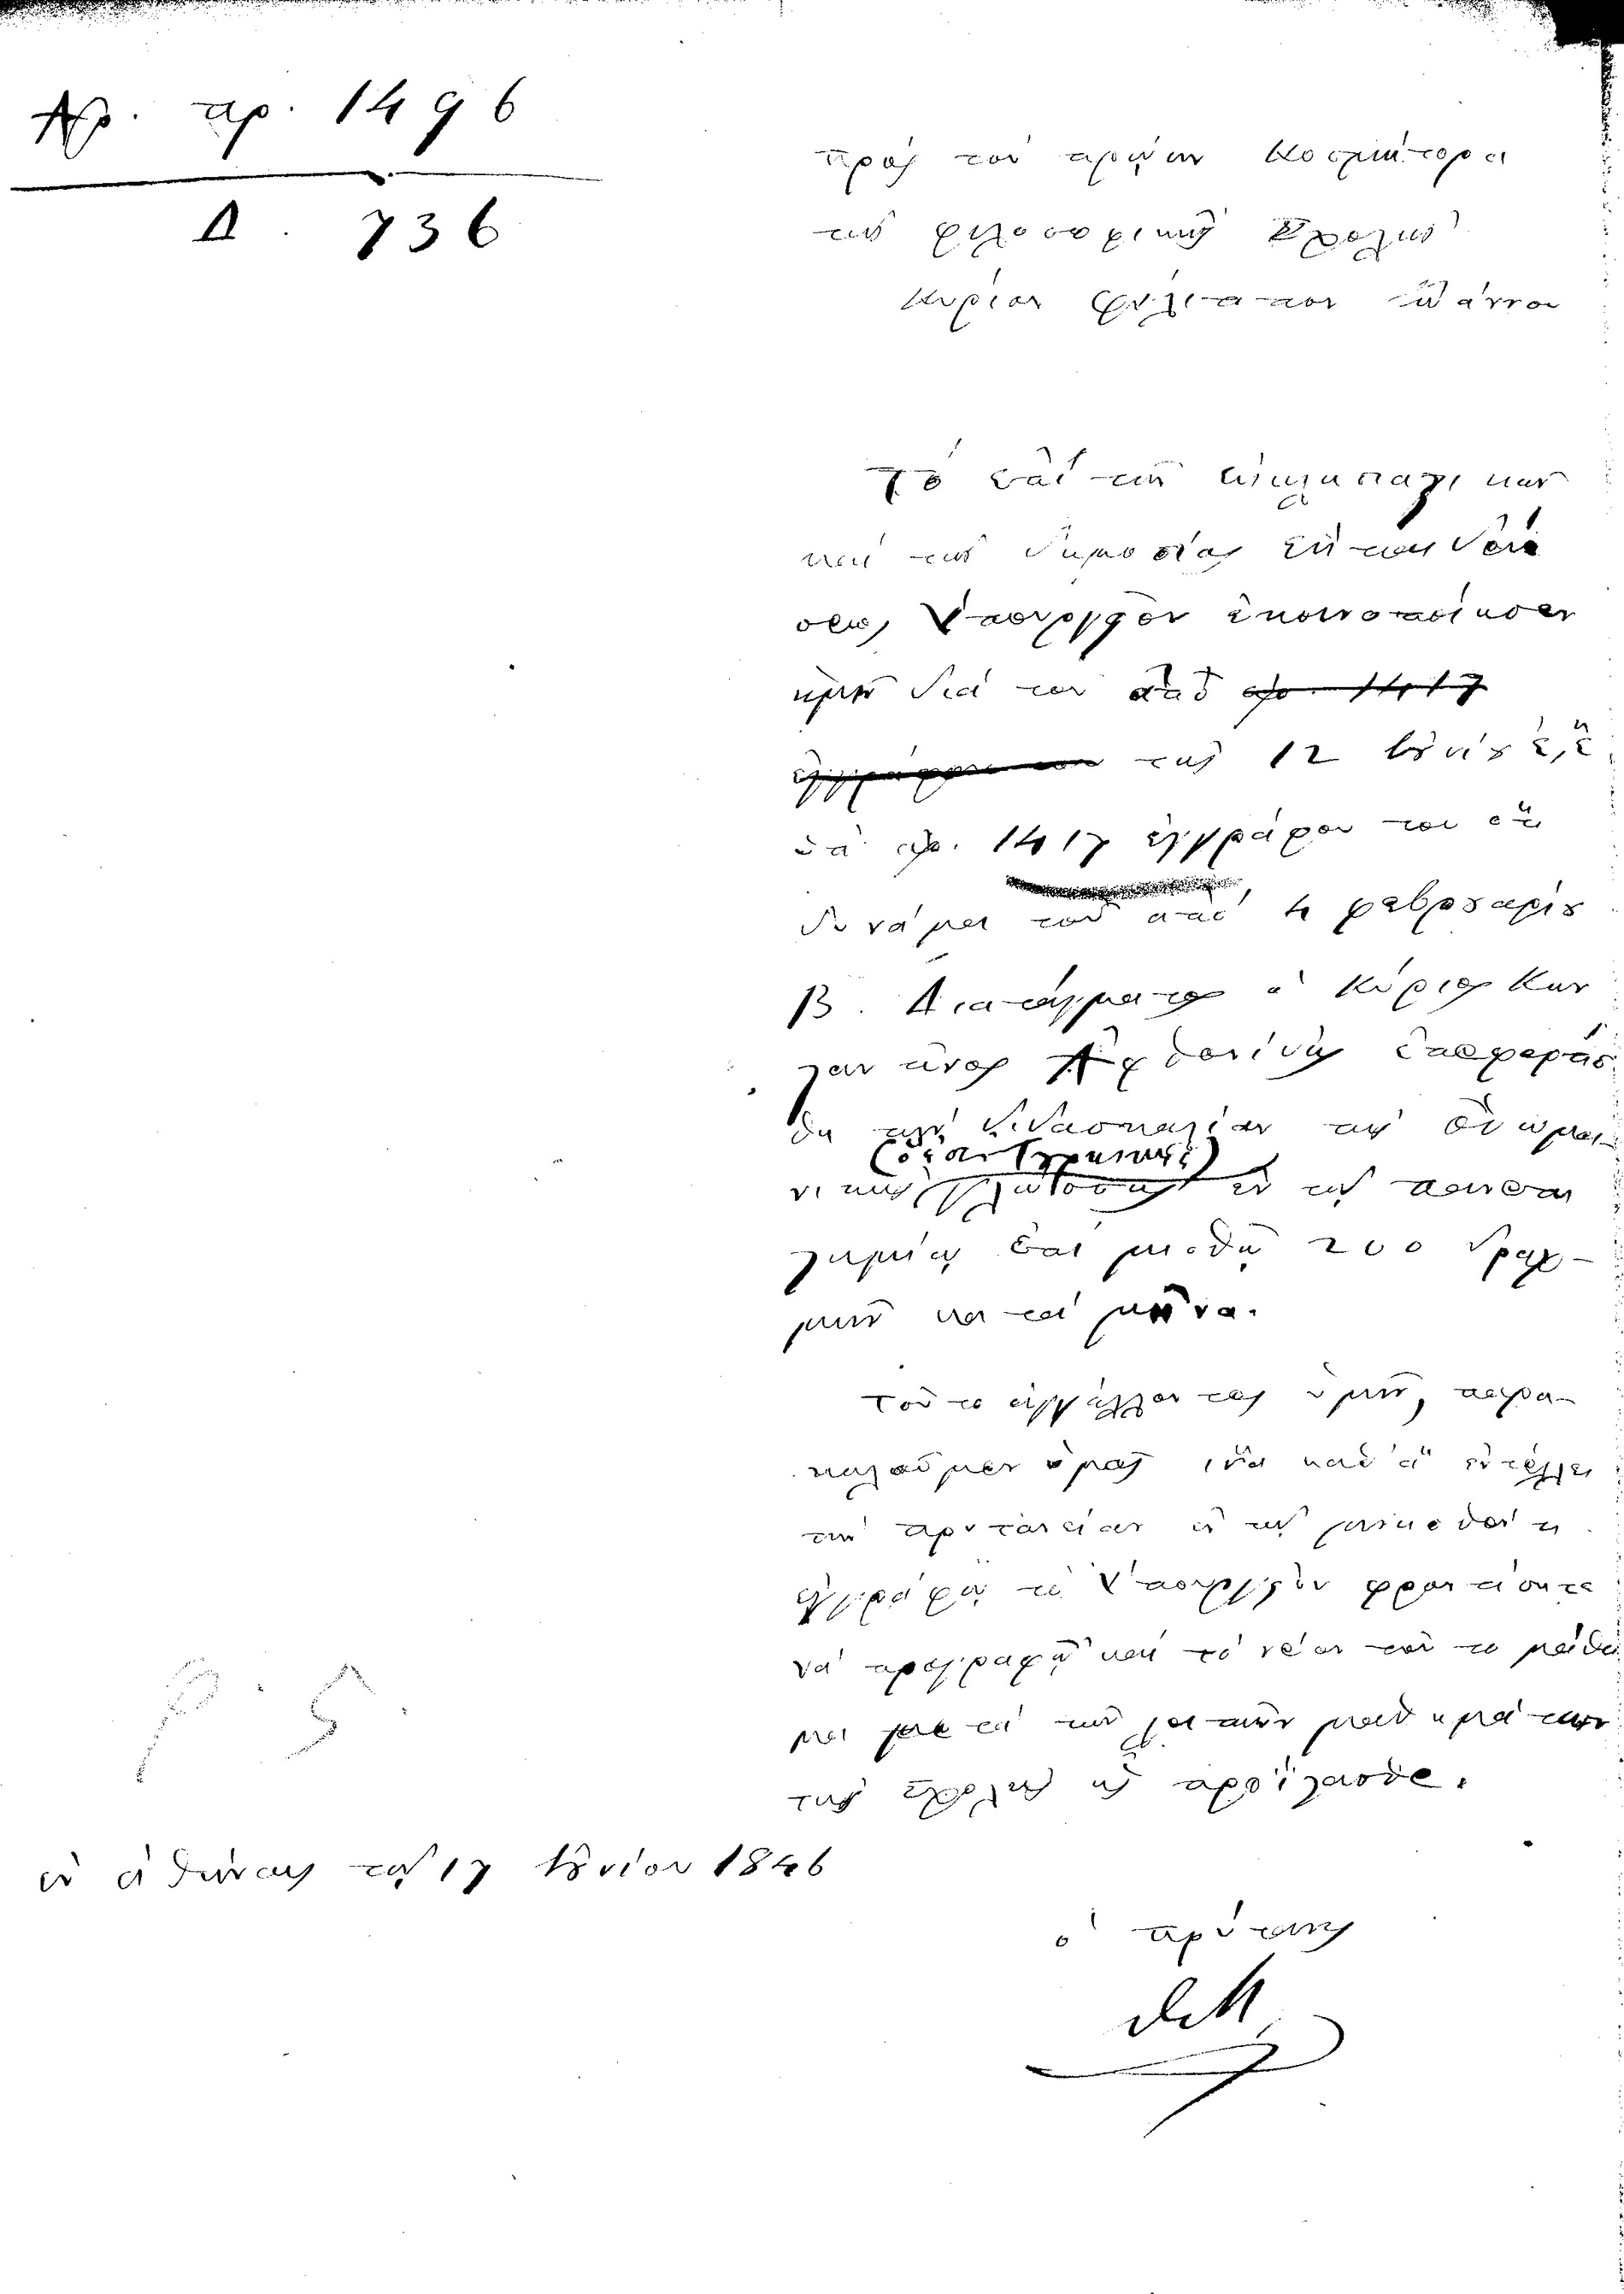 Αρ. πρ. 1496
Δ. 736
πρὸς τὸν πρώην Κοσμήτορα
τῆς φιλοσοφικῆς Σχολῆς
Κύριον Φίλιππον Ἰωάννου
Τὸ ἐπὶ τῶν ἐκκλησιαστικῶν
καὶ τῆς δημοσίας ἐκπαιδεύ
σεως Ὑπουργεῖον ἐκοινοποίησεν
ἡμῖν διὰ τοῦ ἀπὸ αρ. 1417
ἐγγράφου του τῆς 12 Ἰουνίου ἔ.ἔ.
ὑπ' αρ. 1417 ἐγγράφου του ὅτι
δυνάμει τοῦ ἀπὸ 4 φεβρουαρίου
Β. Διατάγματος ὁ Κύριος Κων
σταντῖνος ἐπεφορτίσ
θη τὴν διδασκαλίαν τῆς ὀθωμα
νικῆς γλώσσης ἐν τῷ πανεπι
στημίῳ ἐπὶ μισθῷ 200 δραχ-
μῶν κατὰ μῆνα.
Τοῦτο ἀγγέλλοντες ὑμῖν, παρα-
καλοῦμεν ὑμᾶς ἵνα καθ' ἃ ἐντέλλει
τὴν πρυτανείαν ἐν τῷ μνησθέντι
ἐγγράφῳ τὸ Ὑπουργεῖον φροντίσητε
νὰ προσγραφῇ καὶ τὸ νέον τοῦτο μάθη
μα μετὰ τῶν λοιπῶν μαθημάτων
τῆς σχολῆς ἧς προΐστασθε.
ἐν Ἀθήναις τῇ 17 Ἰουνίου 1846
ὁ πρύτανις